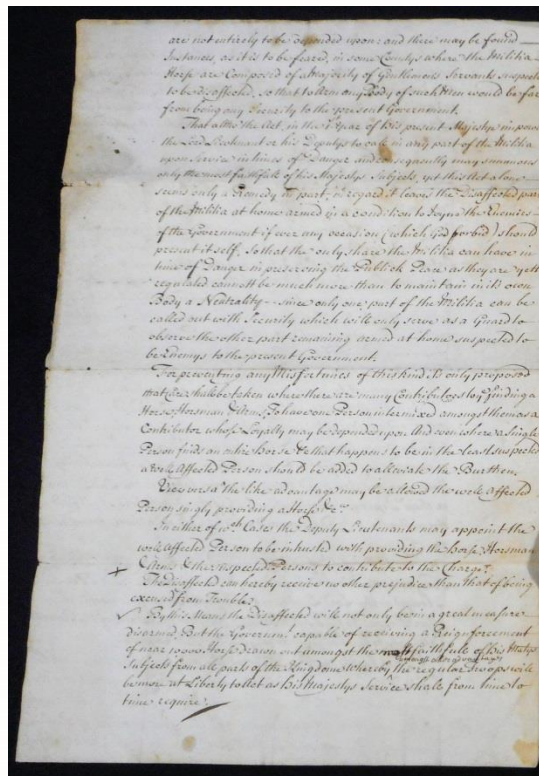 are not entirely to be depended upon: and there may be found
Instances as it is to be feared, in some Countys where the Militia
Horse are Composed of a Majority of Gentlemens Servants suspected
to be disaffected, so that to Arm any Body of such Men would be far
from being any Security to the present Government.
That altho the Act, in the 1st Year of his present Majestys impowers
the Lord Lieutenant or his Deputys to call in any part of the Militia
upon Service in times of Danger and consequently may summons
only the most faithfull of his Majestys Subjects, yet this Act alone
seems only a Remedy in part, in regard it leaves the Disaffected part
of the Militia at home armed in a condition to Joyn the Enemies
of the Government if ever any occasion (which God forbid) should
present it self, So that the only share the Militia can have in
time of Danger in preserving the Publick Peace as they are yett
regulated cannot be much more than to maintain in its own
Body a Neutrality - since only one part of the Militia can be
called out with Security which will only serve as a Guard to
observe the other part remaining armed at home suspected to
be Enemys to the present Government.
For preventing any Misfortunes of this kind it is only proposed
that Care shall be taken where there are many Contributors to ye finding a
Horse, Horsman & Arms, To have one Person intermixed amongst them as a
Contributor whose Loyalty may be depended upon And even where a single
Person finds an entire Horse &c that happens to be in the least suspected
a well Affected Person should be added to alleviate the Burthen
Vice versa the like advantage may be allowed the well affected
Person singly providing a Horse &ca
In either of wch Cases the Deputy Lieutenants may appoint the
well Affected Person to be intrusted with providing the Horse, Horsman
& Arms & the suspected Persons to contribute to the Charge.
The disaffected can hereby receive no other prejudice than that of being
excused from Trouble.
By this Means the Disaffected will not only be in a great measure
disarmed, But the Governmt capable of receiving a Reinforcement
of near Horse drawn out amongst the most faithfull of his Majtys
Subjects from all parts of the Kingdome whereby the regular Troops will
be more at Liberty to Act as his Majestys Service shall from time to
time require.